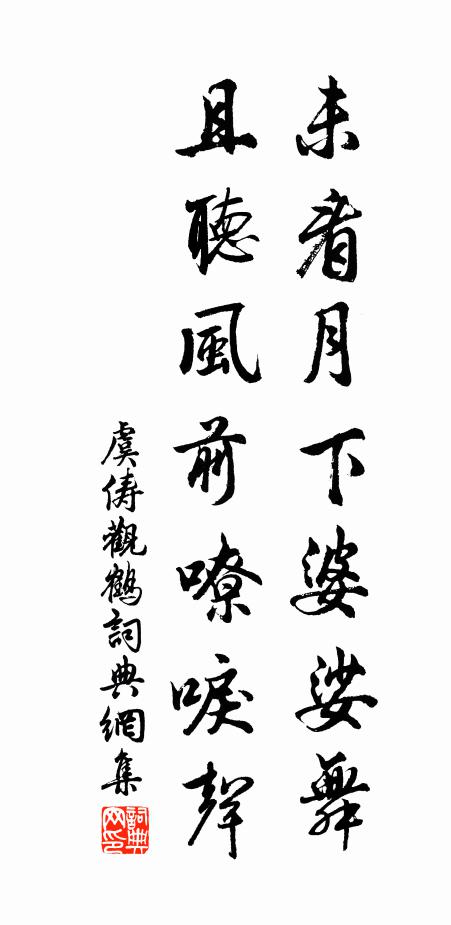 未看月下婆娑舞
且聽風前嘹唳聲
虞儔觀鶴詞典網集
詞典网印